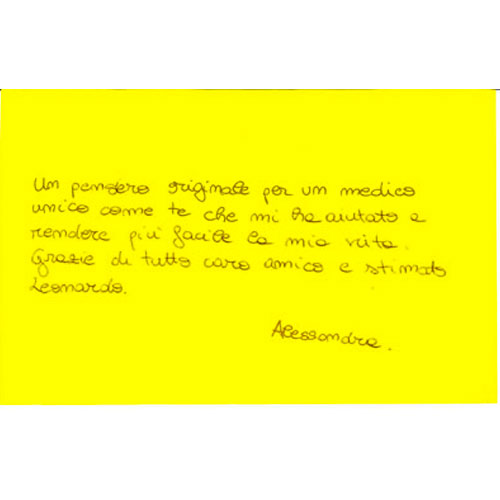 Un pensiero originale per un medico
unico come te che mi ha aiutato a
rendere più facile la mia vita.
Grazie di tutto caro amico e stimato
Leonardo.
Alessandra.